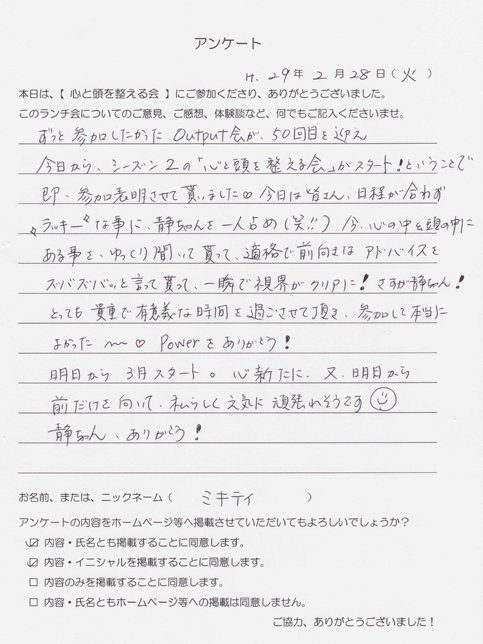 アンケート
H. 29年 2月 28日(火)
本日は、【 心と頭を整える会 】にご参加くださり、ありがとうございました。
このランチ会についてのご意見、ご感想、体験談など、何でもご記入くださいませ。
ずっと参加したかった Output会が、50回目を迎え
今日から、シーズン2の「心と頭を整える会」がスタート!ということで
即、参加表明させて貰いました♡今日は皆さん、日程が合わず
"ラッキー"な事に、静ちゃんを一人占め(笑!!) 今、心の中と頭の中に
ある事を、ゆっくり聞いて貰って、適格で前向きな アドバイスを
ズバズバッと言って貰って、一瞬で視界がクリアに! さすが静ちゃん!
とっても 貴重で有意義な時間を過ごさせて頂き、参加して本当に
よかった 〜♡ Powerをありがとう!
明日から 3月スタート。心新たに、又、明日から
前だけを向いて、私らしく元気に頑張れそうです☺
静ちゃん、ありがとう!
お名前、または、ニックネーム( ミキティ )
アンケートの内容をホームページ等へ掲載させていただいてもよろしいでしょうか?
☑ 内容・氏名とも掲載することに同意します。
☑ 内容・イニシャルを掲載することに同意します。
□ 内容のみを掲載することに同意します。
□ 内容・氏名ともホームページ等への掲載は同意しません。
ご協力、ありがとうございました!